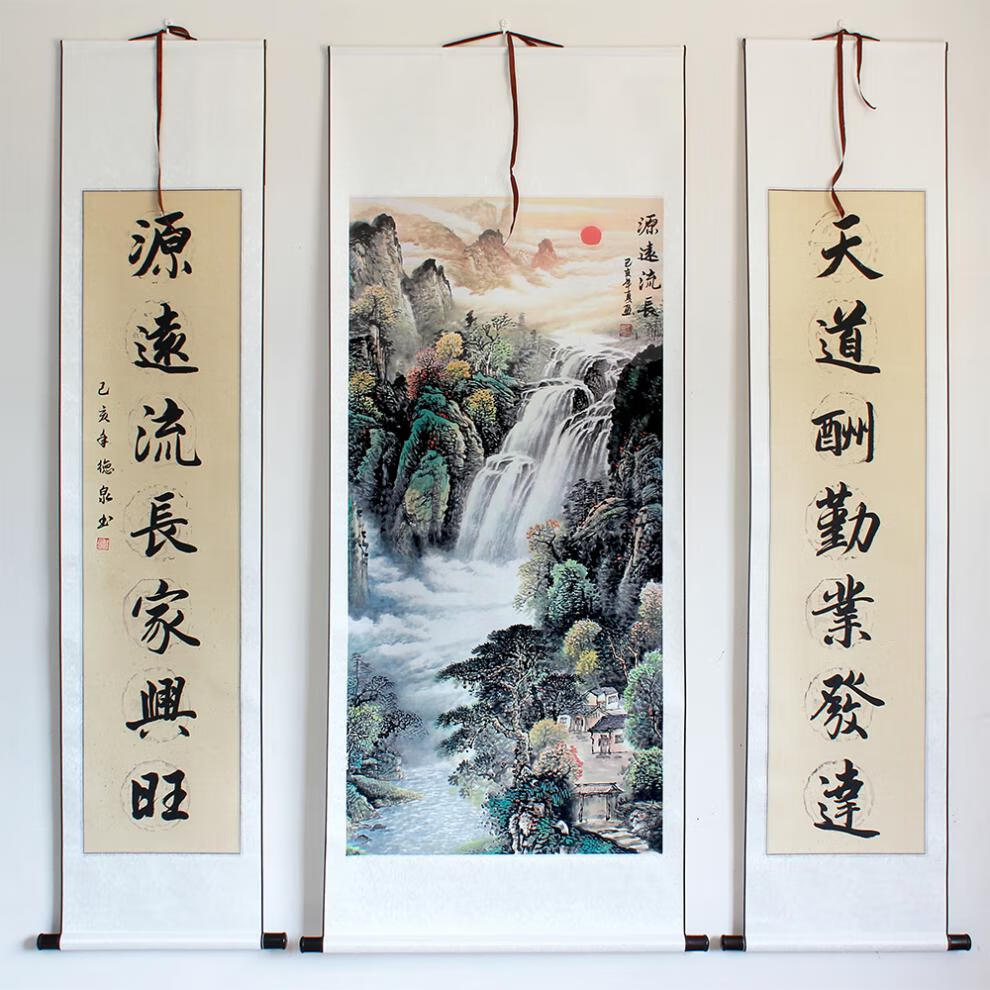 天道酬勤業發達
源遠流長
己亥年夏画
源遠流長家興旺
己亥年德泉书